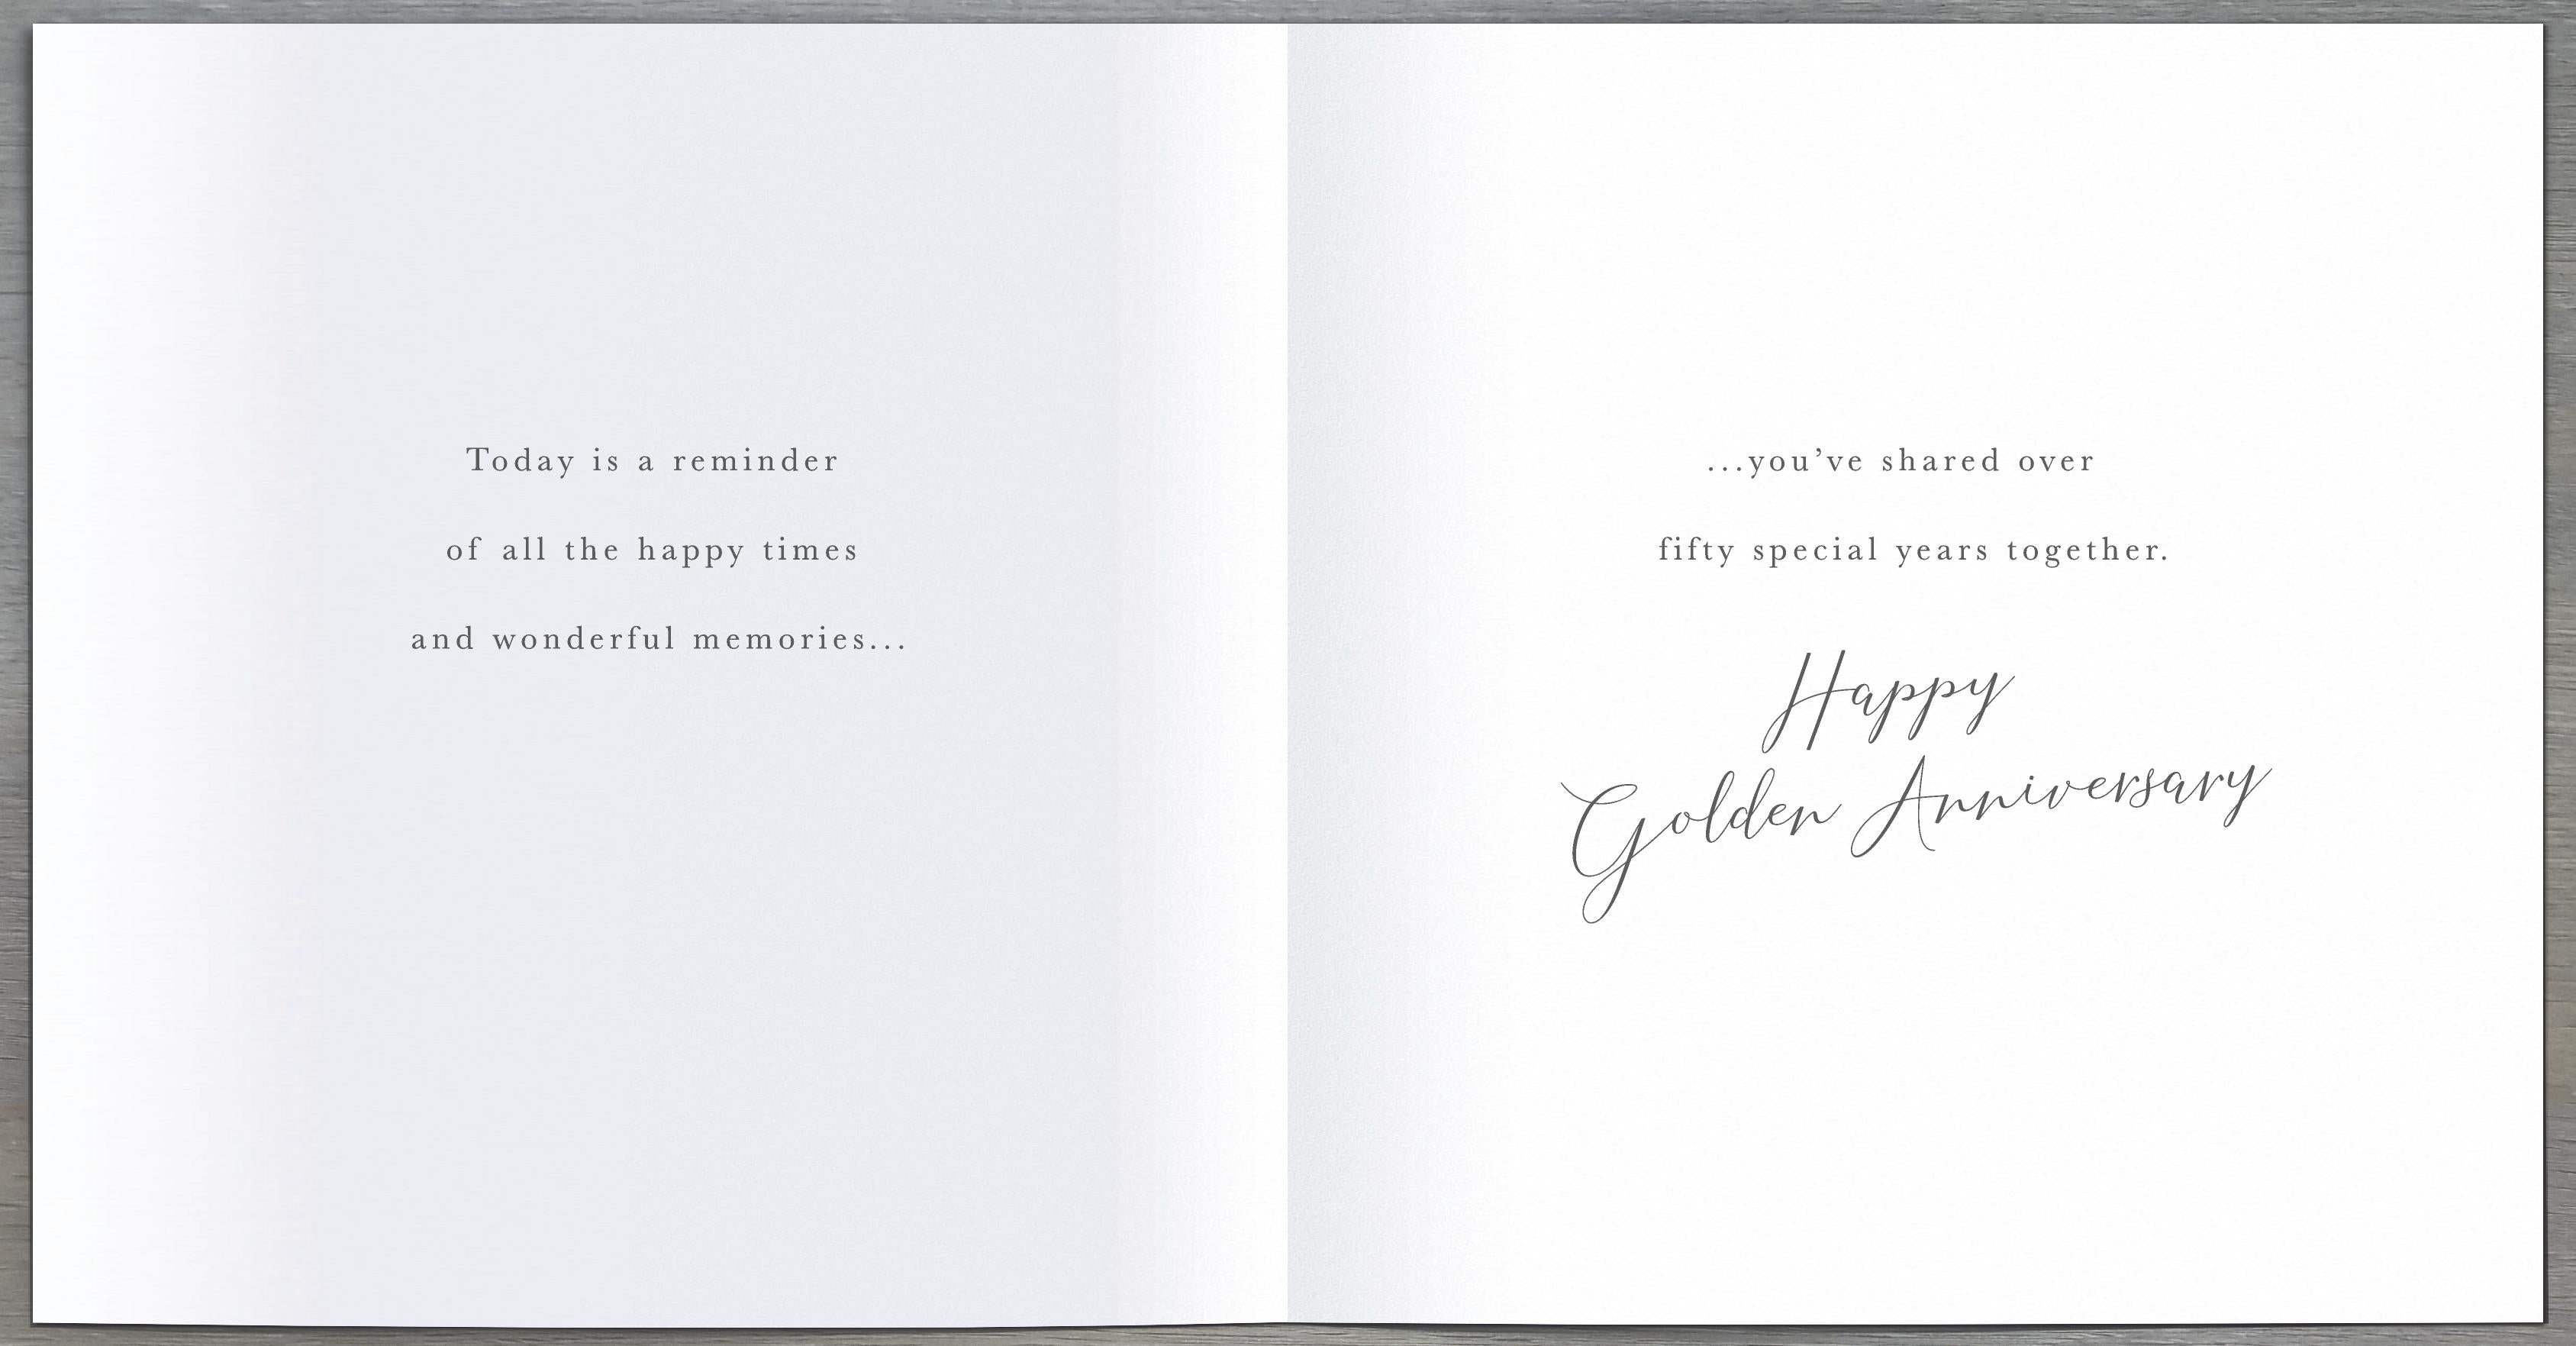 Today is a reminder
of all the happy times
and wonderful memories...
...you’ve shared over
fifty special years together.
Happy
Golden Anniversary